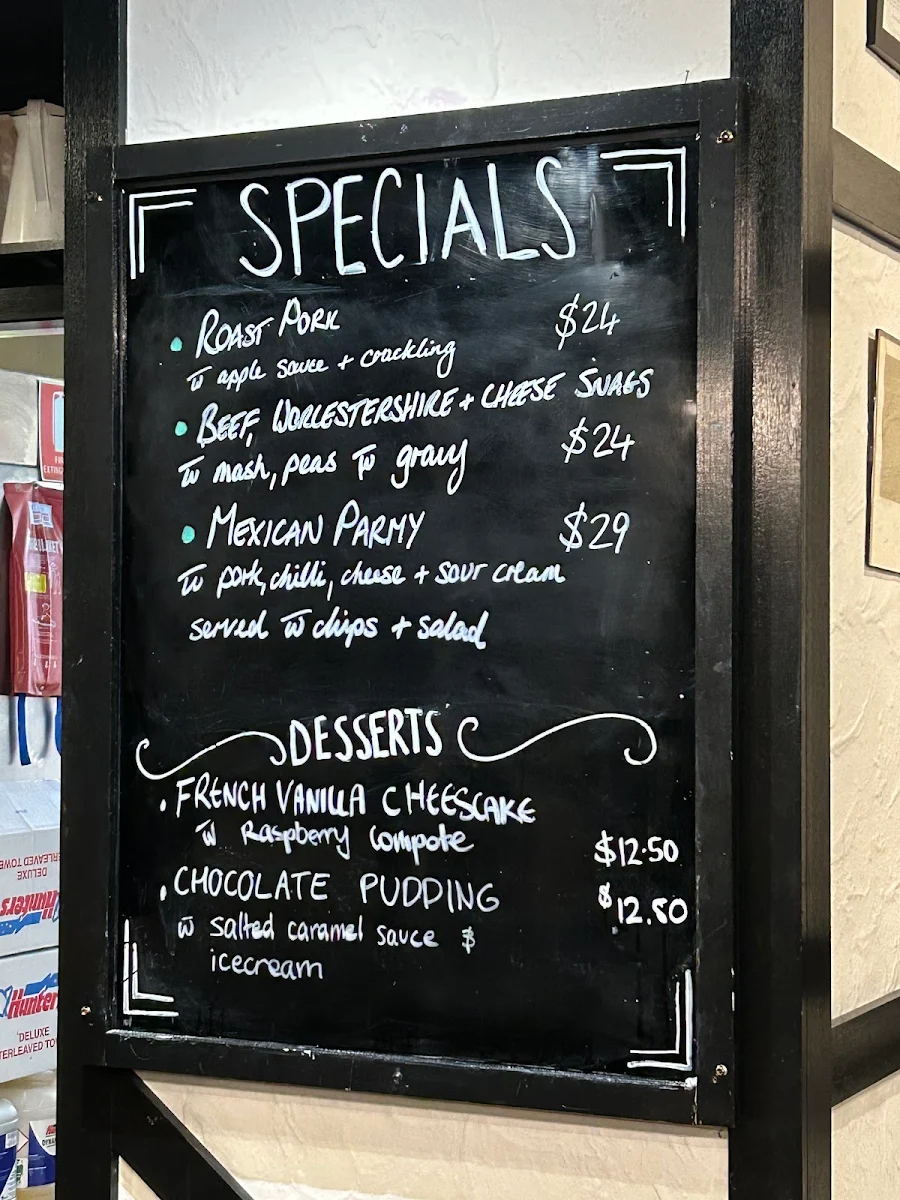 SPECIALS
• ROAST PORK $24
w apple sauce + crackling
• BEEF, WORCESTERSHIRE + CHEESE SNAGS
w mash, peas w gravy $24
• MEXICAN PARMY $29
w pork, chilli, cheese + sour cream
served w chips + salad
DESSERTS
• FRENCH VANILLA CHEESCAKE
w Raspberry Compote $12.50
• CHOCOLATE PUDDING $12.50
w salted caramel sauce &
icecream
DELUXE
Hunters
Hunter
DELUXE